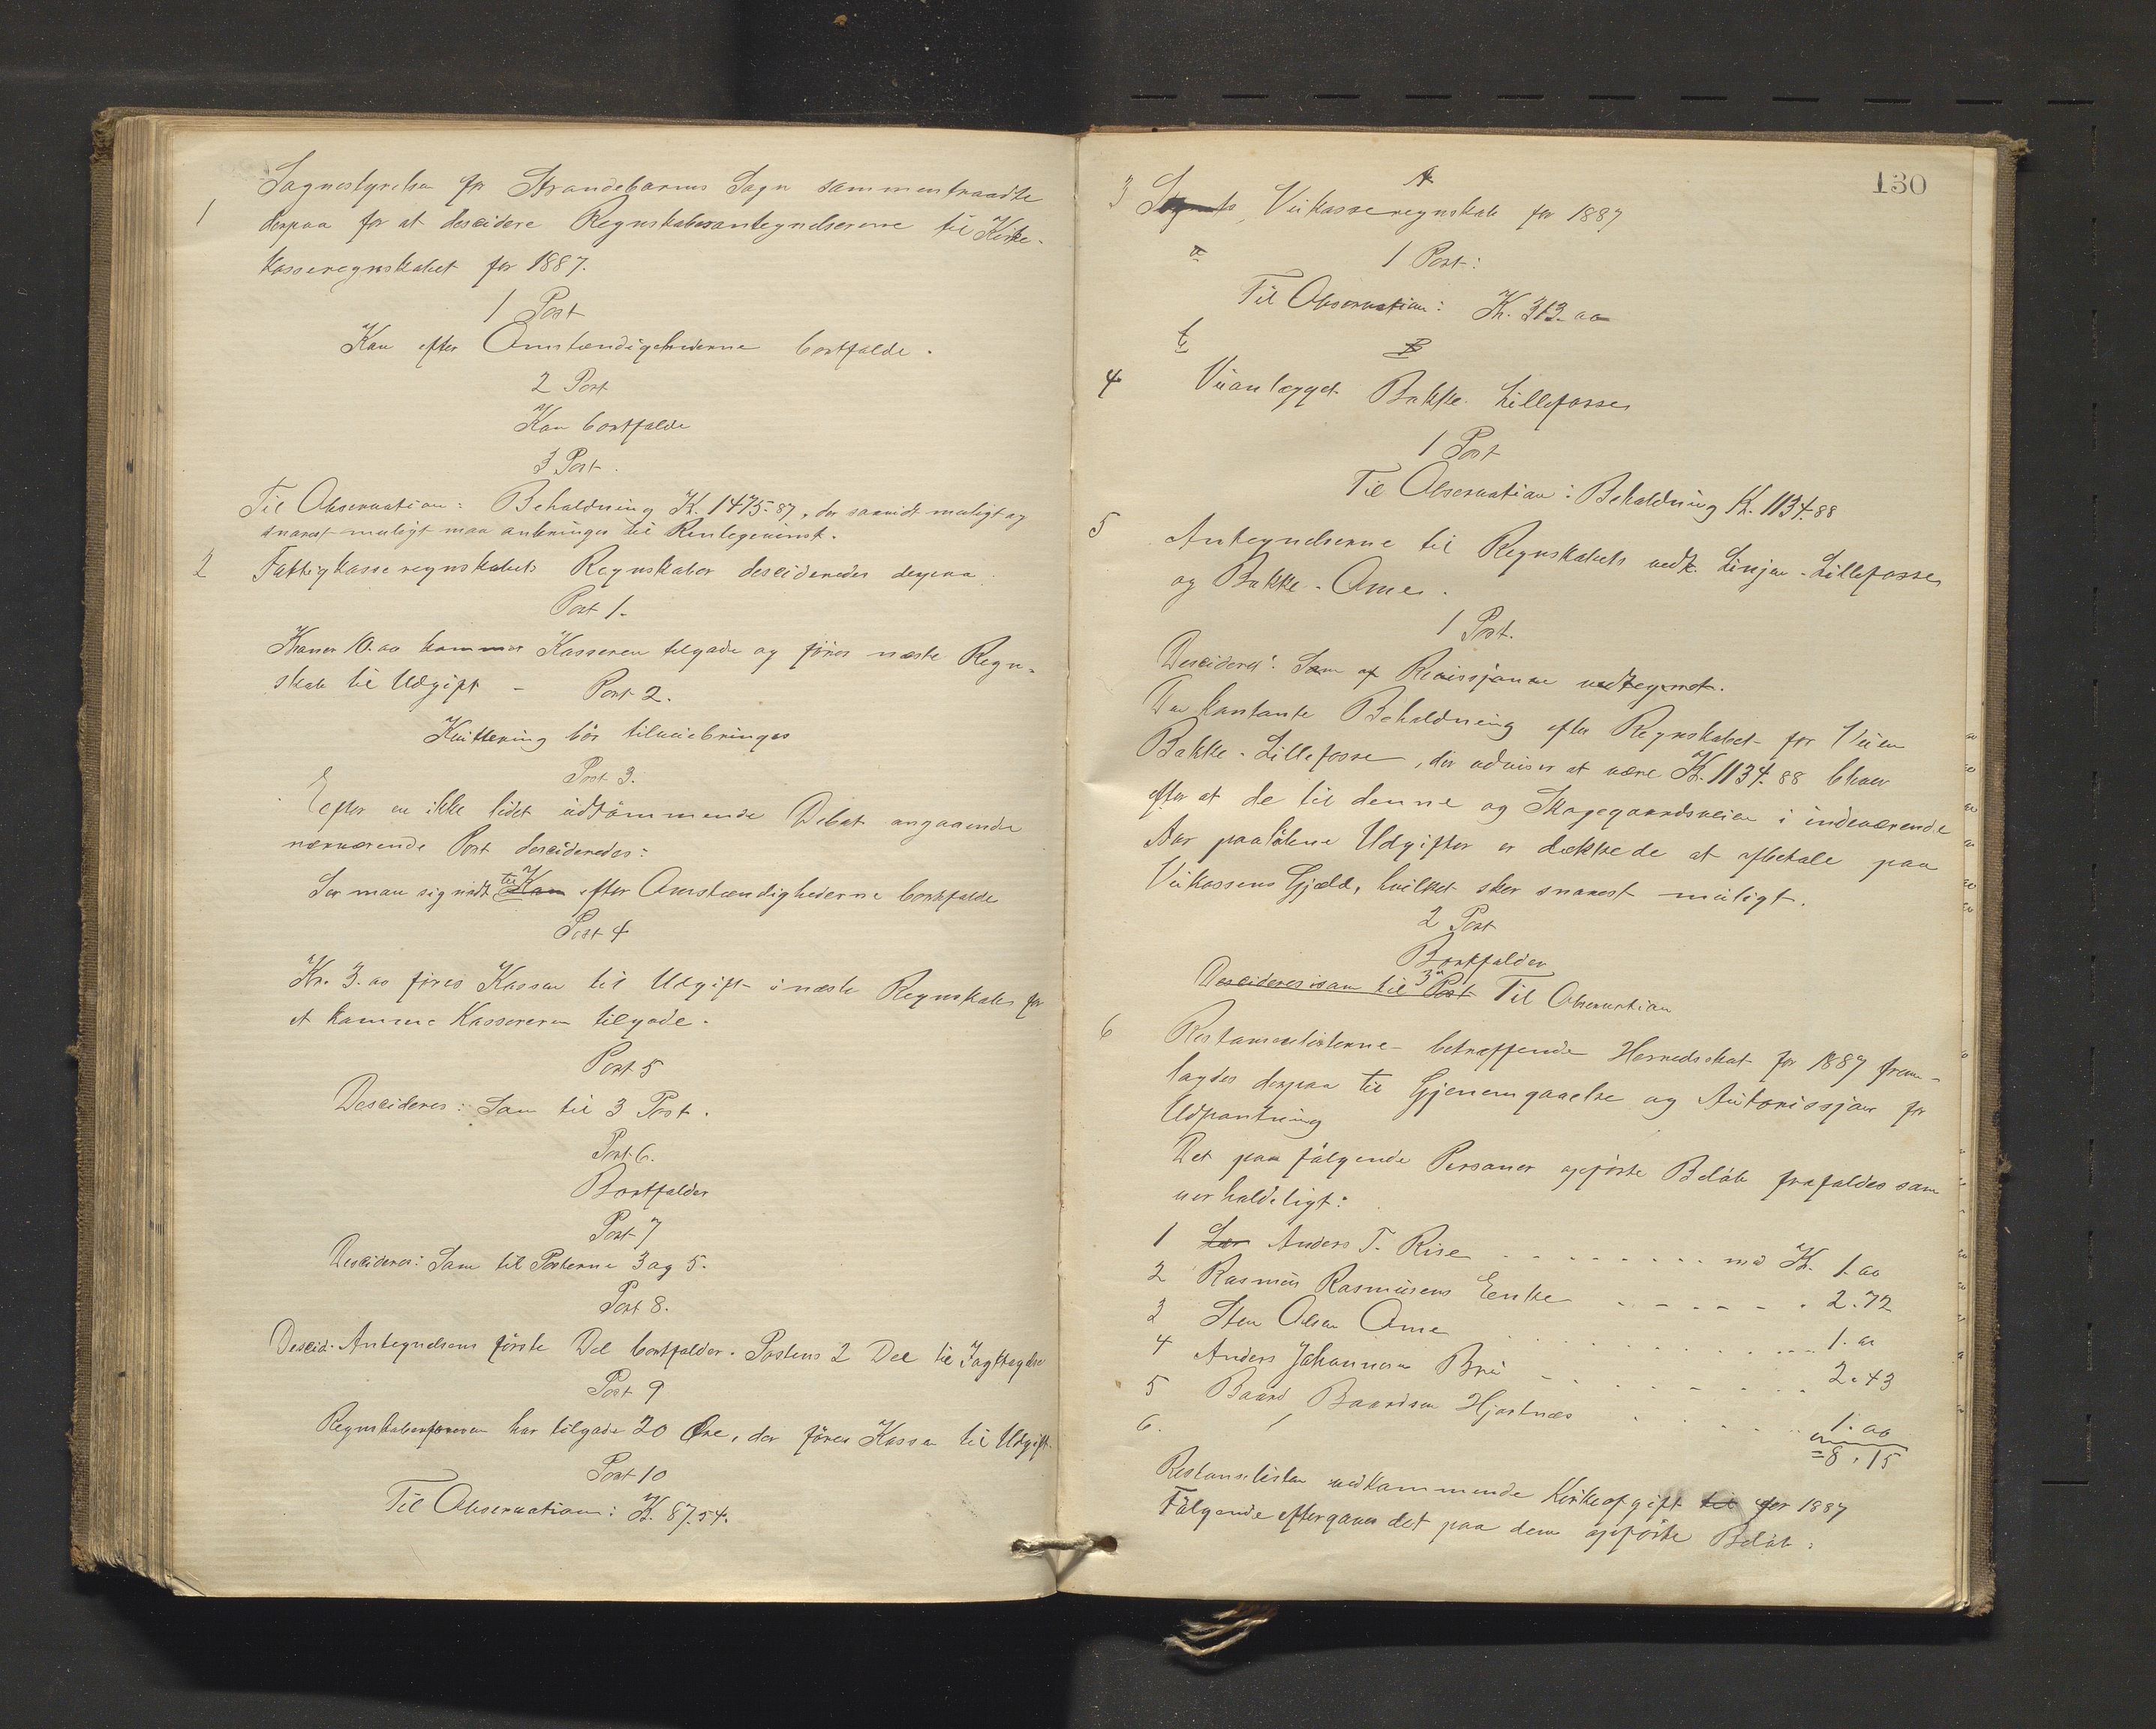 Sognestyrelsen for Strandebarms Sogn sammentraadte
1 derpaa for at descidere Regnskabsantegnelserne til Kirke-
kasseregnskabet for 1887.
1 Post
Kan efter Omstændighederne bortfalde.
2 Post
Kan bortfalde
3 Post.
Til Observation: Beholdning K. 1475.87, der saavidt muligt og
snarest muligt maa anbringes til Rentegevinst.
2 Fattigkasseregnskabets Regnskaber descideredes derpaa
Post 1.
Kroner 10.oo kommer Kasseren tilgode og föres næste Regn-
skab til Udgift -
Post 2.
Kvittering bör tilveiebringes
Post 3.
Efter en ikke lidet udtömmende Debat angaaende
nærværende Post descideredes:
Ser man sig nödt til Kan efter Omstændighederne bortfalde
Post 4
Kr. 3.oo föres Kassen til Udgift i næste Regnskab for
at komme Kassereren tilgode.
Post 5
Descideres: Som til 3 Post.
Post 6.
Bortfalder
Post 7
Descideres: Som til Posterne 3 og 5.
Post 8.
Descid. Antegnelsens förste Del bortfalder. Postens 2 Del til Iagttagelse
Post 9
Regnskabsföreren har tilgode 20 Öre, der föres Kassen til Udgift.
Post 10
Til Observation: K. 87.54.
130
A
3 Sognets, Veikasseregnskab for 1887
a
1 Post:
Til Observation: Kr. 313.oo
b
B
4 Veianlægget Bakke-Lillefosse
1 Post
Til Observation: Beholdning K. 1134.88
5 Antegnelserne til Regnskabets vedk. Linjen-Lillefosse
og Bakke-Ome.
1 Post.
Descideres: Som af Revissjonen vedtegnet.
Den kontante Beholdning efter Regnskabet for Veien
Bakke-Lillefosse, der udvises at være K. 1134.88 bliver
efter at de til denne og Skogegaardsveien i indeværende
Aar paalöbne Udgifter er dækkede at afbetale paa
Veikassens Gjæld, hvilket sker snarest muligt.
2 Post
Bortfalder
3 Post
Descideres som til Til Observation
6 Restanselisterne betræffende Herredsskat for 1887 frem-
lagdes derpaa til Gjenemgaaelse og Autorissjon for
Udpantning
Det paa fölgende Personer opförte Belöb frafaldes som
uerholdeligt:
1 Anders T. Rise - - - - - med K. 1.oo
2 Rasmus Rasmusens Enke - - - - - 2.72
3 Sten Olsen Ome . . . . . 1.oo
4 Anders Johannesen Bru - - - - - 2.43
5 Baard Baardsen Hjartnæs . . . . . 1.oo
6.
=8.15
Restanselisten vedkommende Kirkeafgift til for 1887
Fölgende eftergaves det paa dem opförte Belöb: